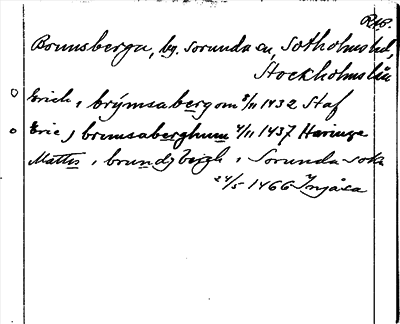 RAP.
Brunsberga, by. Sorunda sn, Sotholms hd,
Stockholms län
Erich i brýmsabergom 8/11 1432 Staf
Eric j brumsaberghum 4/11 1437 Häringe
Mattis i brundzbergh i Sorunda sokn
24/5 1466 Injåca